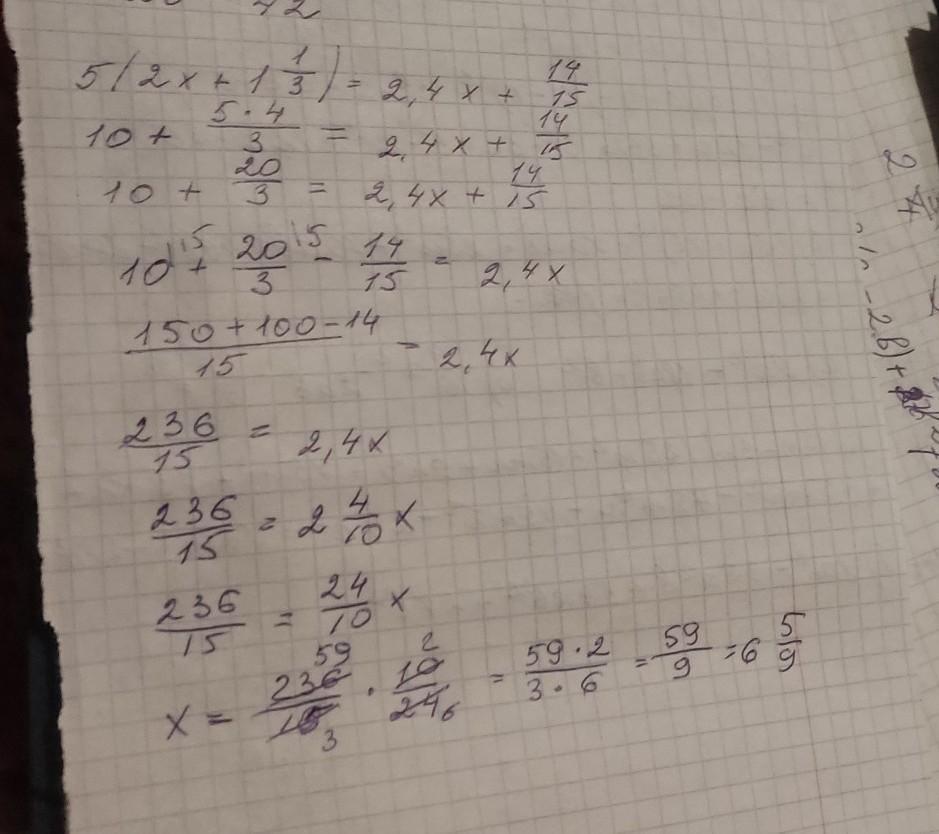 42
5(2x + 1 1/3) = 2,4x + 14/15
10 + 5·4/3 = 2,4x + 14/15
10 + 20/3 = 2,4x + 14/15
10^15 + 20/3^5 - 14/15 = 2,4x
150+100-14/15 = 2,4x
236/15 = 2,4x
236/15 = 2 4/10 x
236/15 = 24/10 x
x = 236/15 · 10/24 = 59·2/3·6 = 59/9 = 6 5/9
59 2
3 6